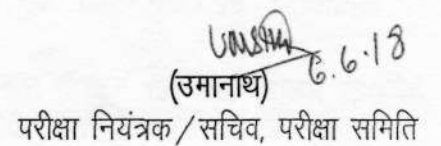 6.6.18
(उमानाथ)
परीक्षा नियंत्रक/सचिव, परीक्षा समिति